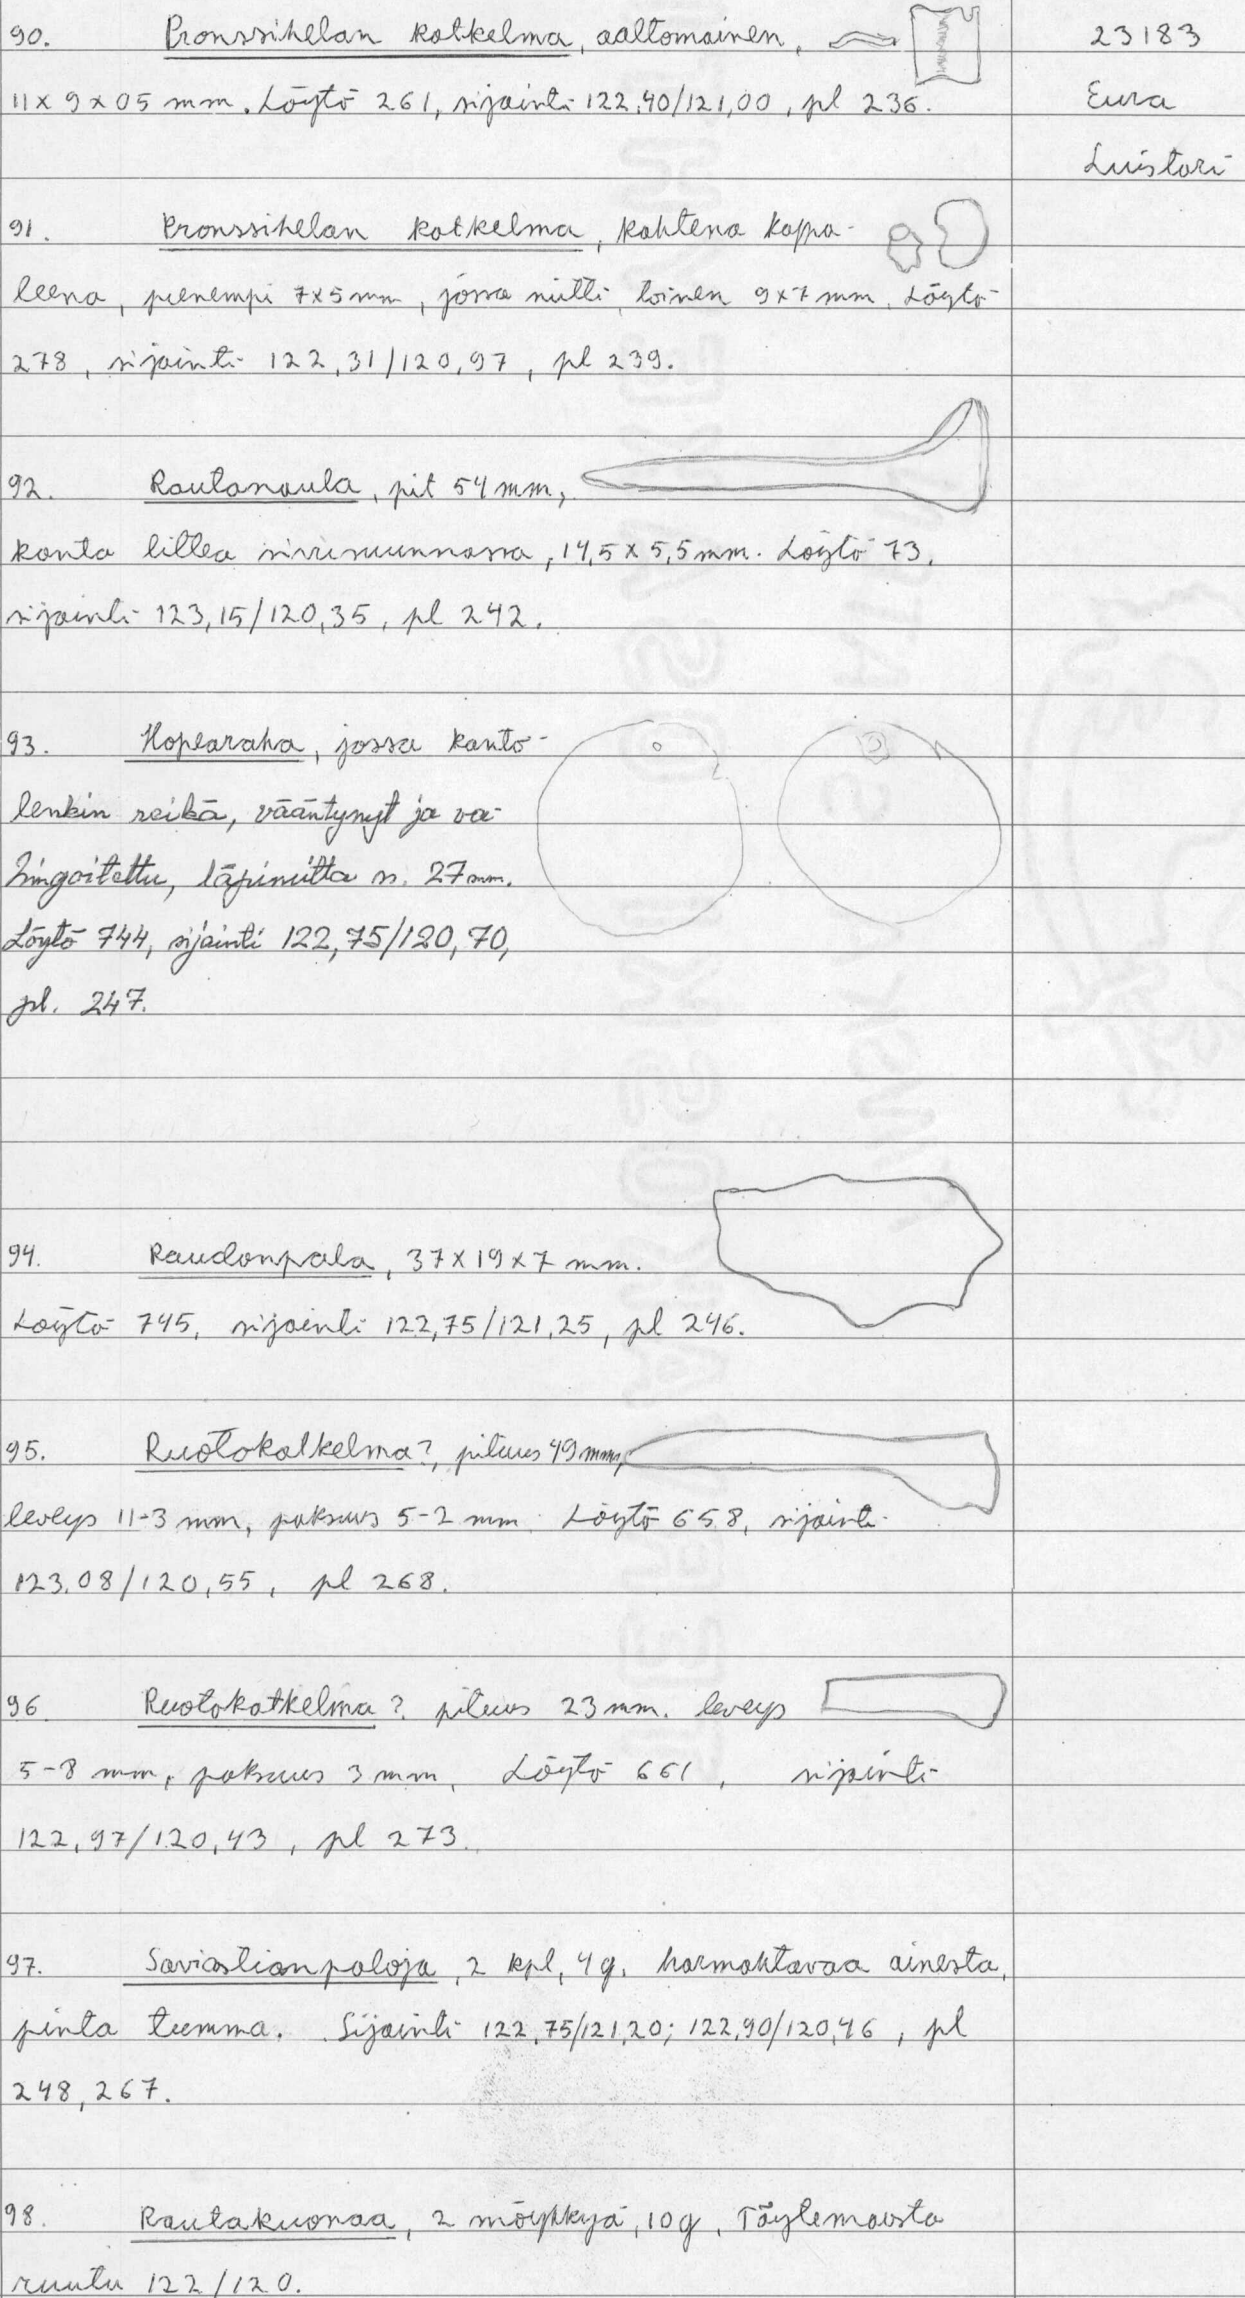 90. Pronssihelan katkelma, aaltomainen,
11 x 9 x 05 mm. Löytö 261, sijainti 122,40/121,00, pl 236.
23183
Eura
Luistari
91. Pronssihelan katkelma, kahtena kappa-
leena, pienempi 7x5 mm, jossa niitti, toinen 9x7 mm. Löytö
278, sijainti 122,31/120,97, pl 239.
92. Rautanaula, pit 54 mm,
kanta litteä sivusuunnassa, 14,5 x 5,5 mm. Löytö 73,
sijainti 123,15/120,35, pl 242.
93. Hopearaha, jossa kanto-
lenkin reikä, vääntynyt ja va-
hingoitettu, läpimitta n. 27 mm.
Löytö 744, sijainti 122,75/120,70,
pl. 247.
94. Raudanpala, 37 x 19 x 7 mm.
Löytö 745, sijainti 122,75/121,25, pl 246.
95. Ruotokatkelma?, pituus 49 mm,
leveys 11-3 mm, paksuus 5-2 mm. Löytö 658, sijainti
123,08/120,55, pl 268.
96 Ruotokatkelma? pituus 23 mm. leveys
5-8 mm, paksuus 3 mm, Löytö 661, sijainti
122,97/120,43, pl 273.
97. Saviastianpaloja, 2 kpl, 4 g, harmahtavaa ainesta,
pinta tumma. Sijainti 122,75/121,20; 122,90/120,46, pl
248, 267.
98. Rautakuonaa, 2 möykkyä, 10 g, Täytemaasta
ruutu 122/120.